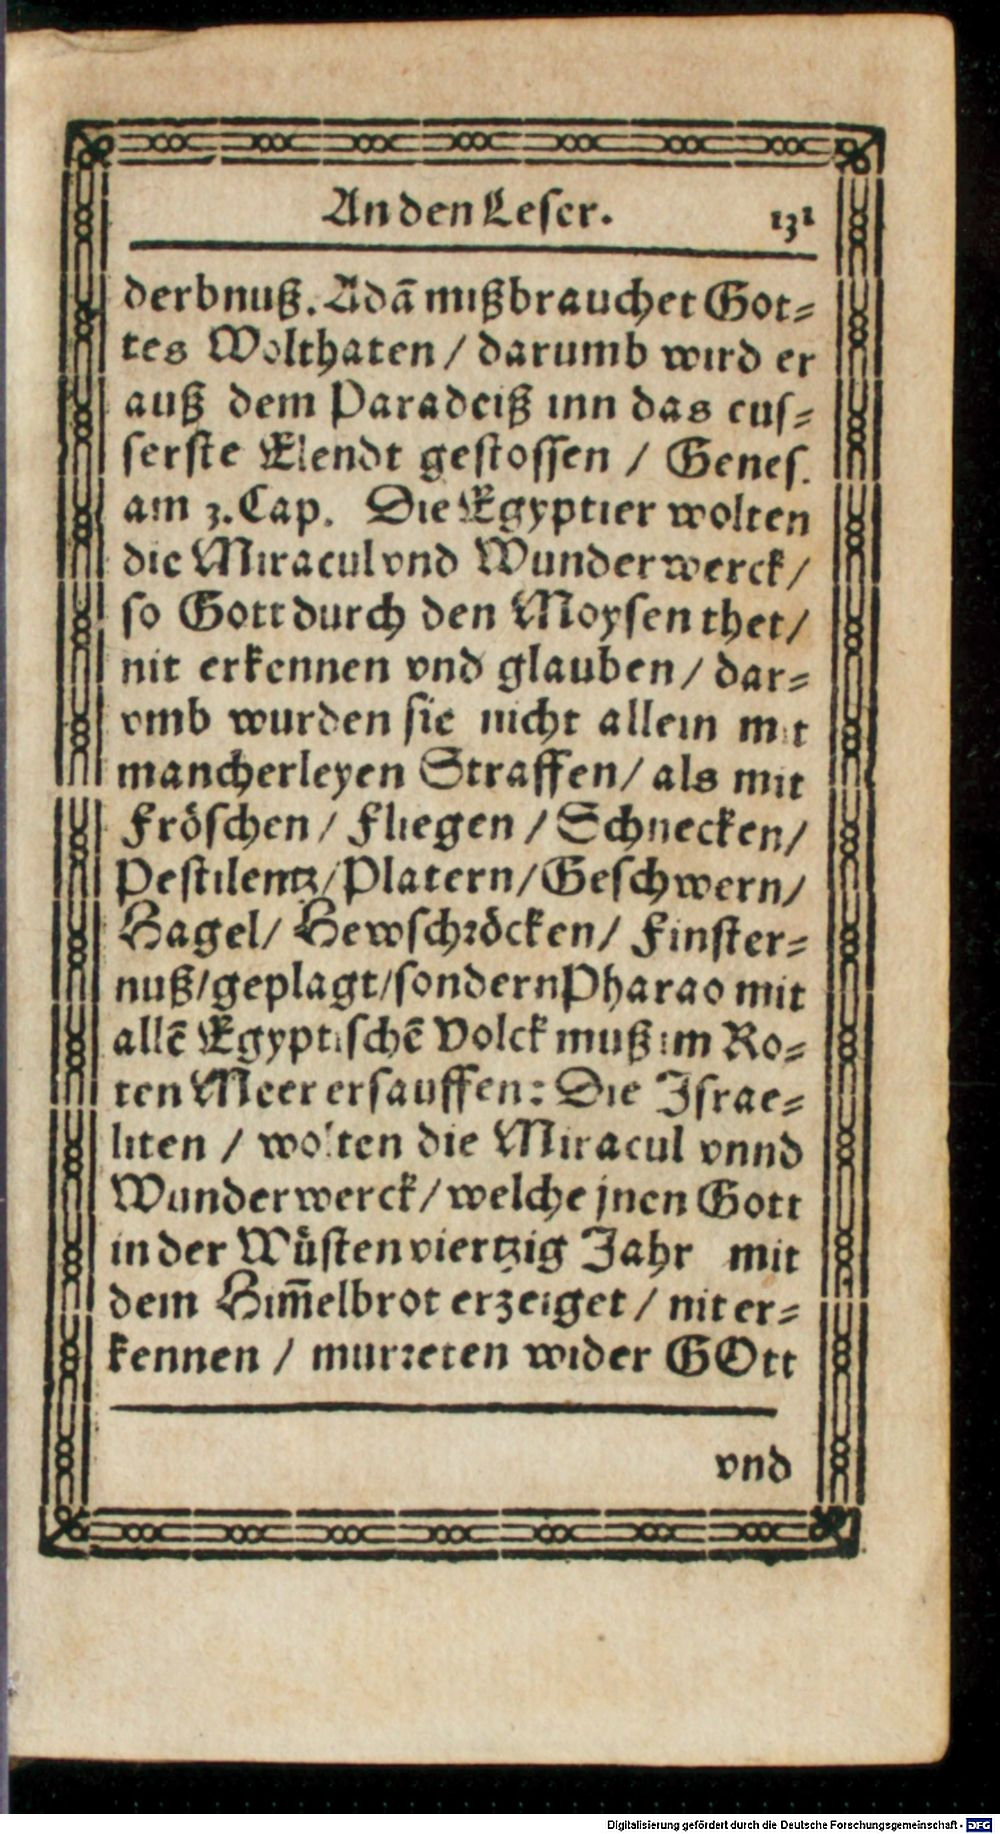 An den Leser. 131
derbnuß. Adã mißbrauchet Got⸗
tes Wolthaten / darumb wird er
auß dem Paradeiß inn das eus⸗
serste Elendt gestossen / Genes.
am 3. Cap. Die Egyptier wolten
die Miracul vnd Wunderwerck /
so Gott durch den Moysen thet /
nit erkennen vnd glauben / dar⸗
vmb wurden sie nicht allein mit
mancherleyen Straffen / als mit
Fröschen / Fliegen / Schnecken /
Pestilentz / Platern / Geschwern /
Hagel / Hewschröcken / Finster⸗
nuß / geplagt / sondern Pharao mit
allẽ Egyptischẽ Volck muß im Ro⸗
ten Meer ersauffen: Die Israe⸗
liten / wolten die Miracul vnnd
Wunderwerck / welche jnen Gott
in der Wüsten viertzig Jahr mit
dem Him̃elbrot erzeiget / nit er⸗
kennen / murreten wider GOtt
vnd
Digitalisierung gefördert durch die Deutsche Forschungsgemeinschaft - DFG